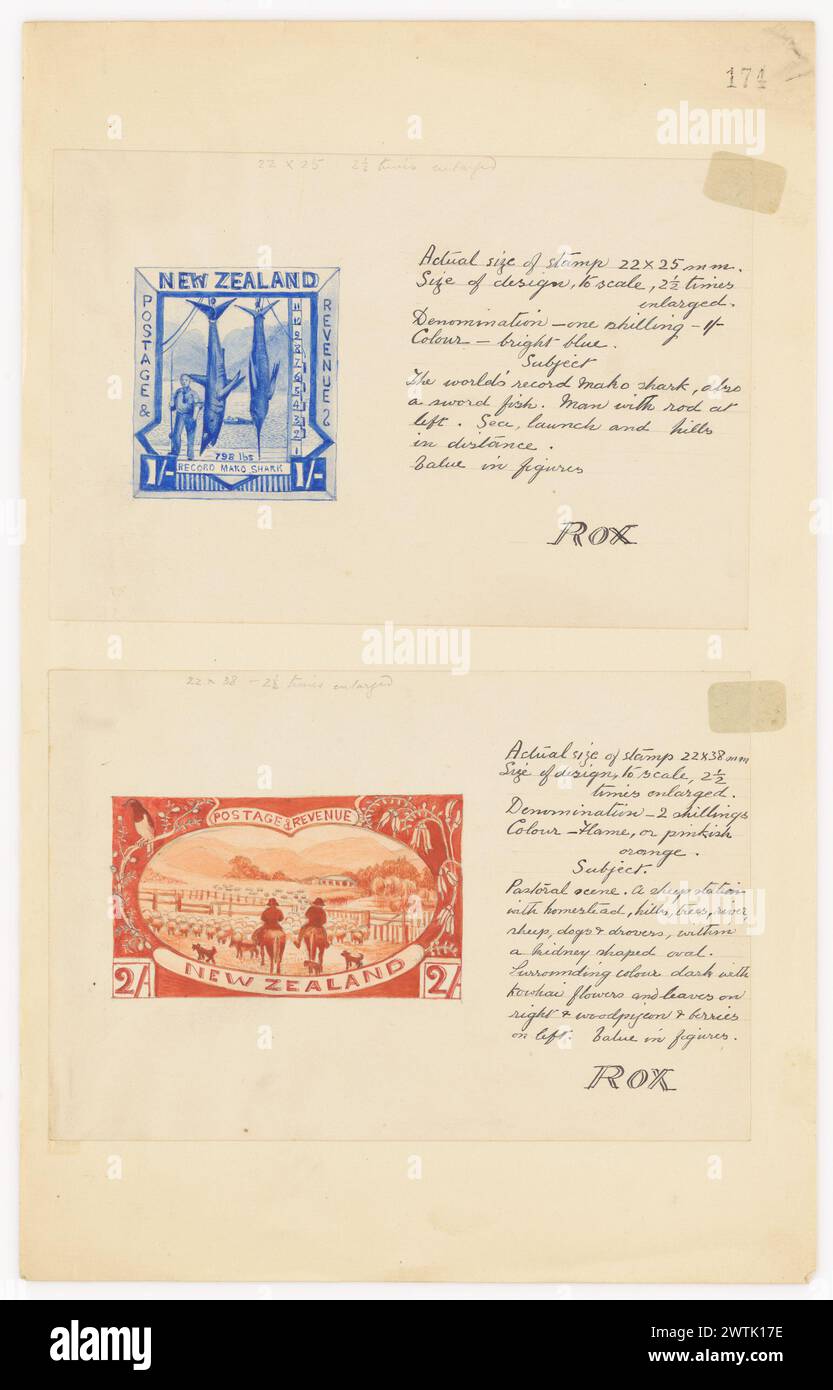 174
22 x 25 2½ times enlarged
NEW ZEALAND
POSTAGE &
REVENUE
11
12
9
8
7
6
5
4
3
2
1
798 lbs
RECORD MAKO SHARK
1/- 1/-
Actual size of stamp 22 x 25 mm.
Size of design, to scale, 2½ times
enlarged.
Denomination – one shilling – 1/-
Colour – bright blue.
Subject
The world's record Mako shark, also
a sword fish. Man with rod at
left. Sea, launch and hills
in distance.
Value in figures
ROX
22 x 38 – 2½ times enlarged
POSTAGE & REVENUE
2/- NEW ZEALAND 2/-
Actual size of stamp 22x38 mm
Size of design, to scale, 2½
times enlarged.
Denomination – 2 shillings
Colour – Flame, or pinkish
orange.
Subject.
Pastoral scene. A sheep station
with homestead, hills, trees, river,
sheep, dogs & drovers, within
a kidney shaped oval.
Surrounding colour dark with
kowhai flowers and leaves on
right & woodpigeon & berries
on left. Value in figures.
ROX
a a a
alamy
alamy
alamy
a a a
alamy
Image ID: 2WTK17E
www.alamy.com